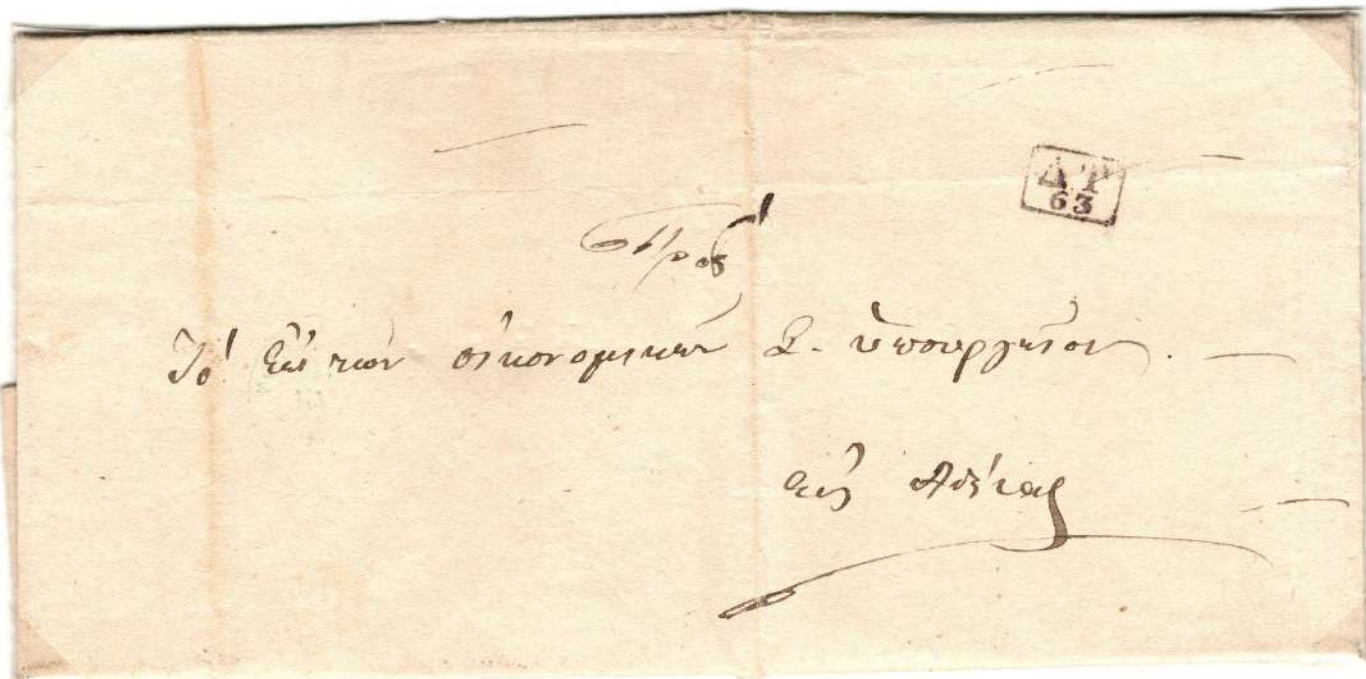 ΔΤ
63
Πρὸς
Τὸ ἐπὶ τῶν οἰκονομικῶν Β. ὑπουργεῖον.
εἰς Ἀθήνας